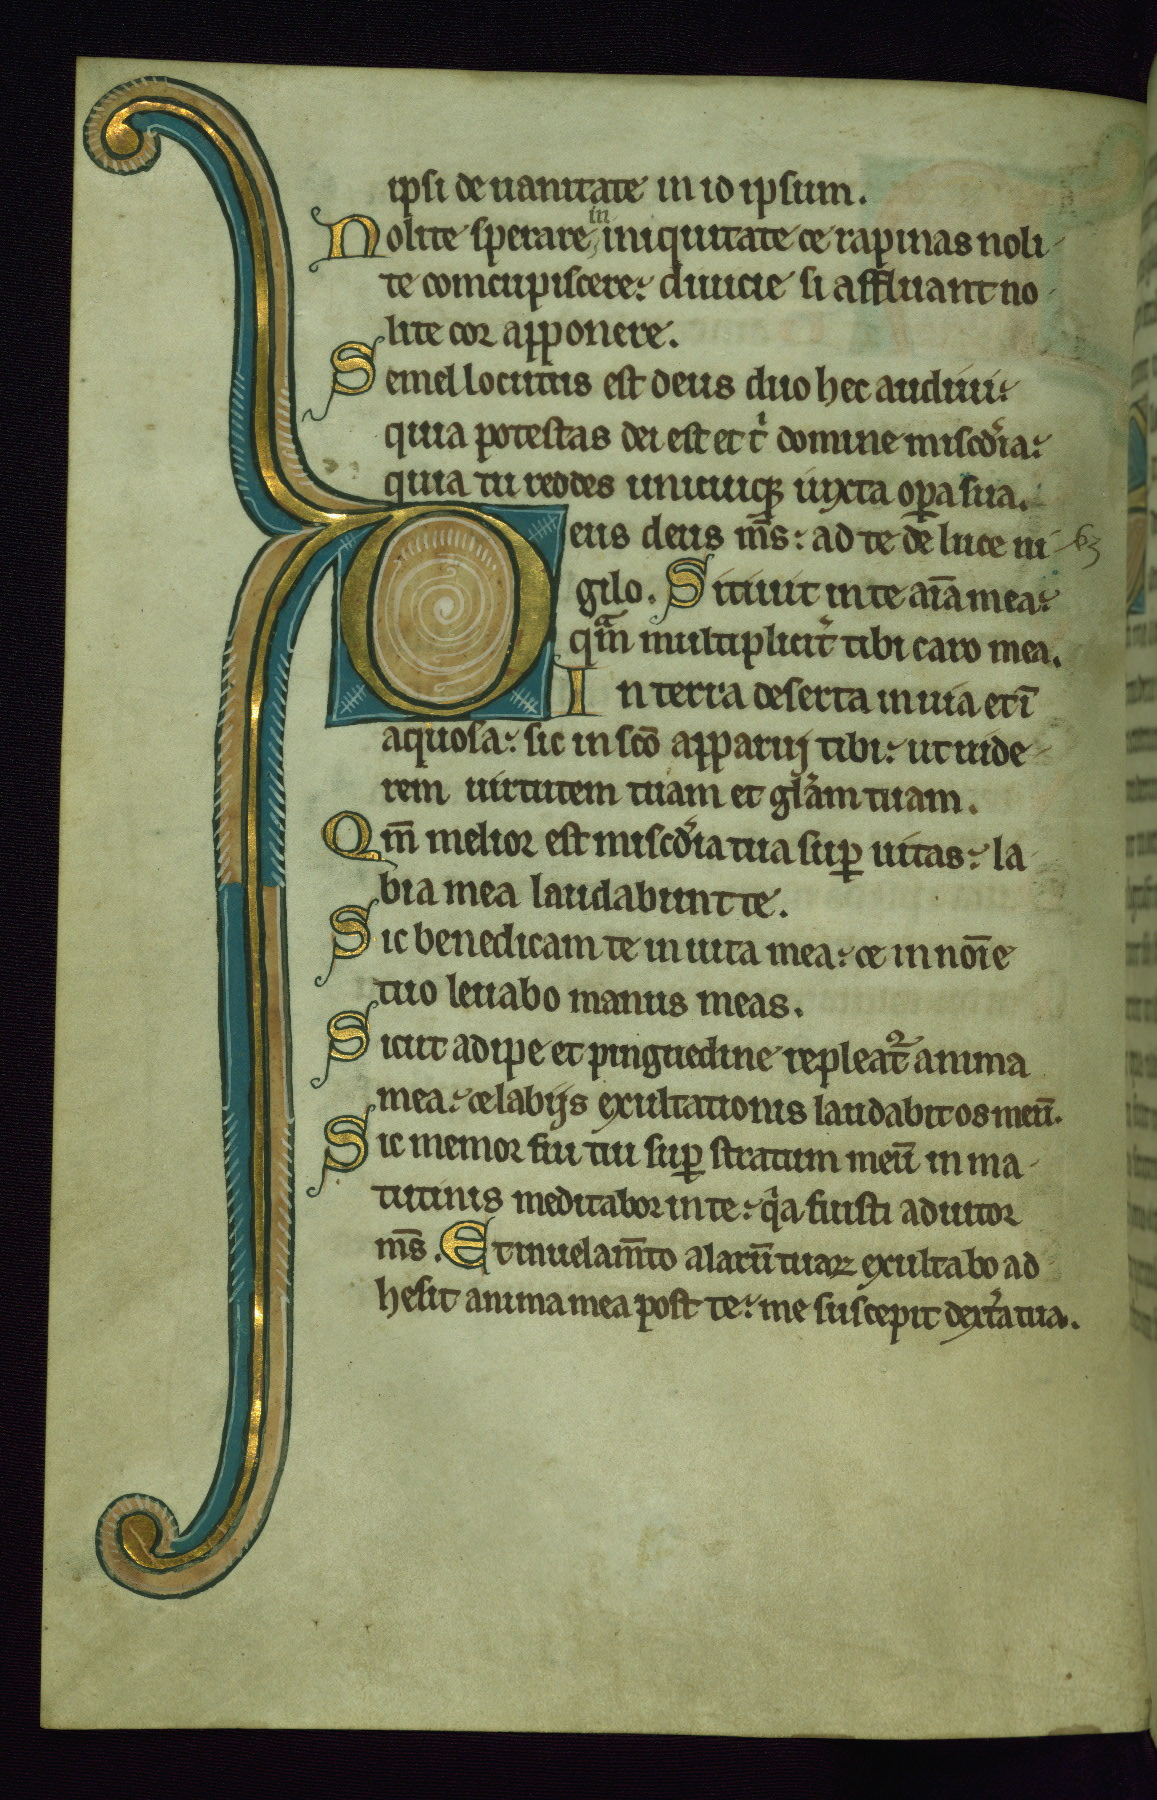 ipsi de uanitate in id ipsum.
Nolite sperare in iniquitate ⁊ rapinas noli
te concupiscere: diuicie si affluant no
lite cor apponere.
Semel locutus est deus duo hec audiui:
quia potestas dei est et t̾ domine miscd̾ia:
quia tu reddes unicuiqꝫ iuxta oꝑa sua.
Deus deus m̄s: ad te de luce ui 63
gilo. Sitiuit in te aīa mea:
qͣm multiplicit̾ tibi caro mea.
In terra deserta inuia et ī
aquosa: sic in sc̄o apparuj tibi: ut uide
rem uirtutem tuam et gl̾am tuam.
Qm̄ melior est miscd̾ia tua suꝑ uitas: la
bia mea laudabunt te.
Sic benedicam te in uita mea: ⁊ in noīe
tuo leuabo manus meas.
Sicut adipe et pinguedine repleat᷑ anima
mea: ⁊ labijs exultationis laudabit os meū.
Sic memor fui tui suꝑ stratum meū in ma
tutinis meditabor in te: qͥa fuisti adiutor
m̄s. Et in uelam̄to alarū tuaꝝ exultabo ad
hesit anima mea post te: me suscepit dext̾a tua.